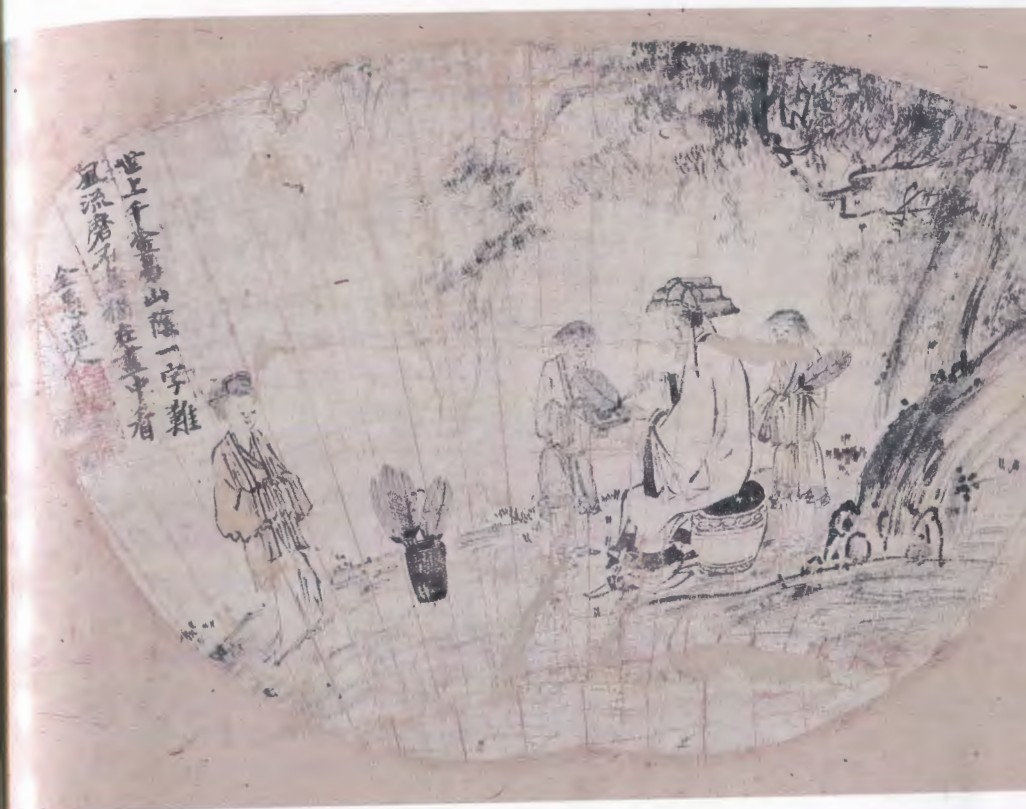 世上千金易山蔭一字難
風流磨不盡猶在畫中看
道人